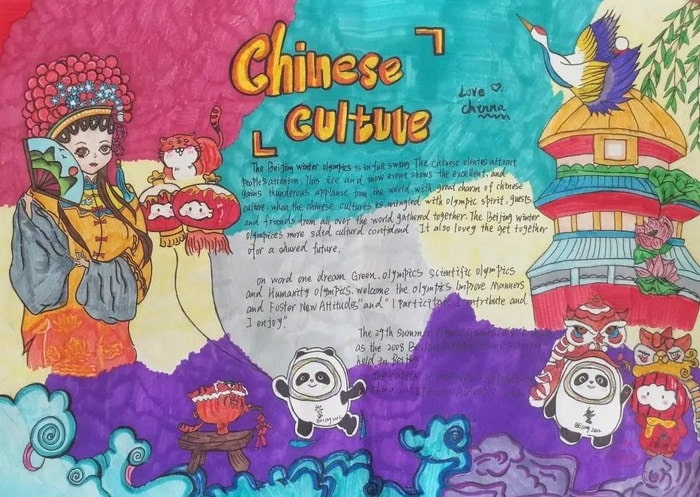 Chinese
culture
Love
chinna
The Beijing winter olympics is in full swing. The chinese
people's attention. This ice and snow event shows the excellent. and
gains thunderous applause from the world with great charm of chinese
culture. when the chinese cultures is mingled with olympic spirit, guests
and friends from all over the world gathered together. The Beijing winter
olympices more soild cultural It also loveg the get together
for a shured future.
on word one dream Green. olympics scientific olympics
and Humanity olympics. welcome the olympics Improve Manners
and Foster New Attitudes" and "I participate contribute and
I enjoy"
The 29th Summer
as the 2008
held in Beijing
Beijing 2022
Beijing 2022